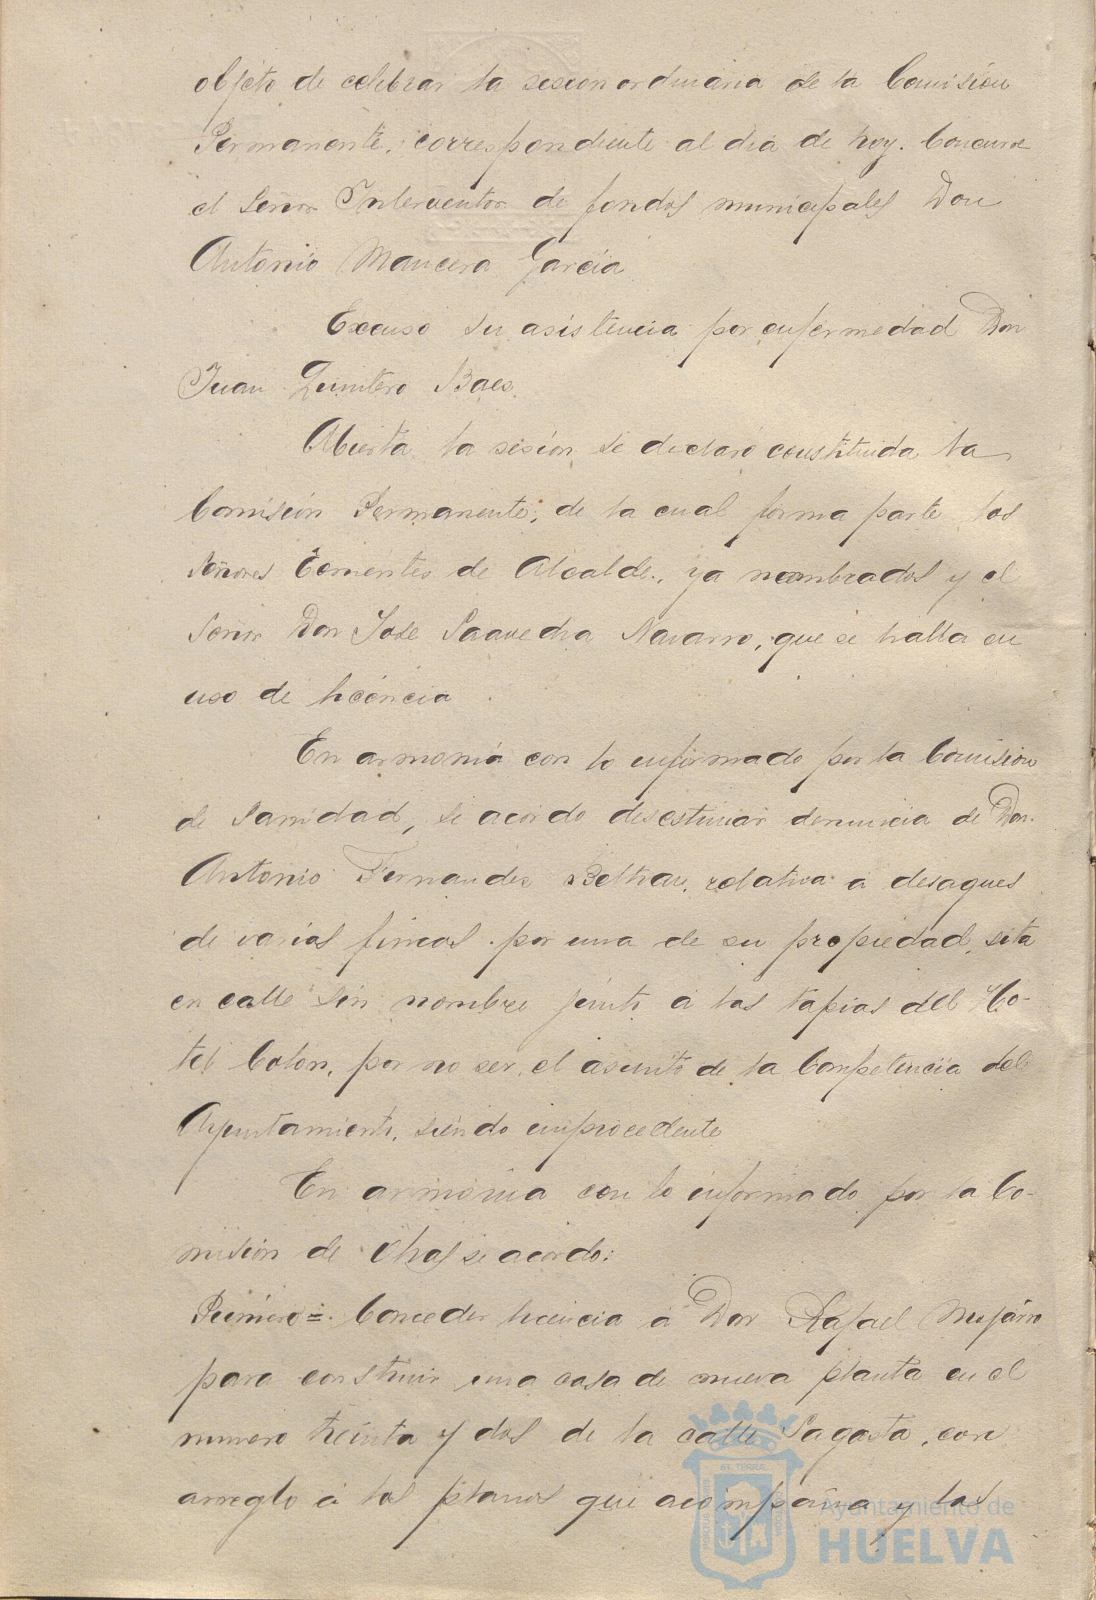 objeto de celebrar la sesion ordinaria de la Comisión
Permanente, correspondiente al dia de hoy. Concurre
el Señor Interventor de fondos municipales Don
Antonio Mancera García
Excuso su asistencia por enfermedad Don
Juan Quintero Baes.
Abierta la sesión se declaró constituida la
Comisión Permanente, de la cual forma parte los
Señores Tenientes de Alcalde, ya nombrados y el
Señor Don José Saavedra Navarro, que se halla en
uso de licencia
En armonía con lo informado por la Comisión
de Sanidad, se acordo desestimar denuncia de Don
Antonio Fernandez Beltran, relativa a desagues
de varias fincas por una de su propiedad, sita
en calle sin nombre junto a las tapias del Ho-
tel Colón, por no ser el asunto de la Competencia del
Ayuntamiento, siendo improcedente
En armonía con lo informado por la Co-
misión de Obras se acordo:
Primero=. Conceder licencia á Don Rafael Mojarro
para construir una casa de nueva planta en el
numero treinta y dos de la calle Sagasta, con
arreglo á los planos que acompaña y las
Ayuntamiento de
HUELVA